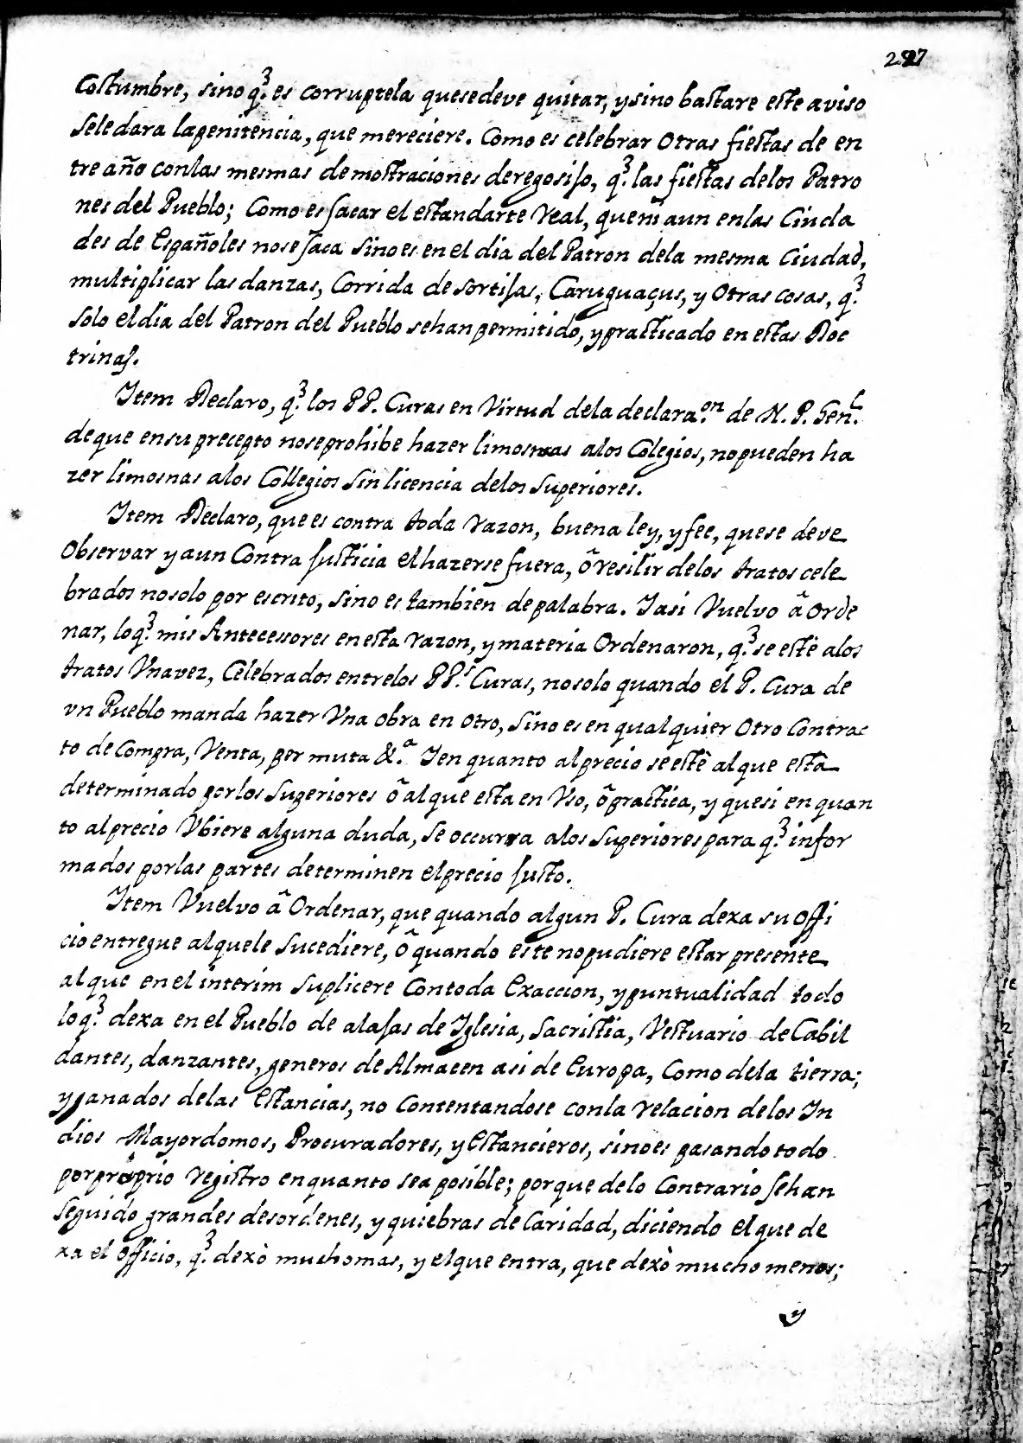 297
Costumbre, sino q.^e es corruptela quesedeve quitar, ysino bastare este aviso
seledara lapenitencia, que mereciere. Como es celebrar Otras fiestas de en
tre año conlas mesmas demostraciones deregosijo, q.^e las fiestas delos Patro
nes del Pueblo; Como es sacar el estandarte Real, queni aun enlas Ciuda
des de Españoles nose saca sino es en el dia del Patron dela mesma Ciudad,
multiplicar las danzas, Corrida de sortijas, Caruguaçus, y Otras cosas, q.^e
solo eldia del Patron del Pueblo sehan permitido, ypracticado en estas Doc
trinas.
Item Declaro, q.^e los PP. Curas en Virtud dela declara.^on de N. P. Gen.^l
deque ensu precepto noseprohibe hazer limosnas alos Colegios, nopueden ha
zer limosnas alos Collegios sin licencia delos Superiores.
Item Declaro, que es contra toda razon, buena ley, y fee, quese deve
Observar y aun Contra Justicia elhazerse fuera, ô resilir delos tratos cele
brados nosolo por escrito, sino es tambien de palabra. Iasi Vuelvo â Orde
nar, loq.^e mis Antecessores enesta razon, y materia Ordenaron, q.^e se estè alos
tratos Vnavez, Celebrados entrelos PP.^s Curas, nosolo quando el P. Cura de
vn Pueblo manda hazer Vna obra en otro, sino es en qualquier Otro Contrac
to de Compra, Venta, permuta &.^a I en quanto alprecio se estè alque està
determinado porlos Superiores ô alque esta en Vso, ô practica, y quesi enquan
to alprecio Vbiere alguna duda, se occurra alos Superiores para q.^e infor
mados porlas partes determinen elprecio justo.
Item Vuelvo â Ordenar, que quando algun P. Cura dexa su Offi
cio entregue alquele Sucediere, ô quando este nopudiere estar presente
alque enelinterim suplicere Contoda Exaccion, ypuntualidad todo
loq.^e dexa en el Pueblo de alajas de Iglesia, Sacristia, Vestuario de Cabil
dantes, danzantes, generos de Almacen asi de Europa, Como dela tierra;
y ganados delas Estancias, no Contentandose conla relacion delos In
dios Mayordomos, Procuradores, y Estancieros, sinoes pasando todo
porproprio registro enquanto sea posible; porque delo Contrario sehan
seguido grandes desordenes, y quiebras de Caridad, diciendo elque de
xa el officio, q.^e dexò muchomas, y elque entra, que dexò mucho menos;
y